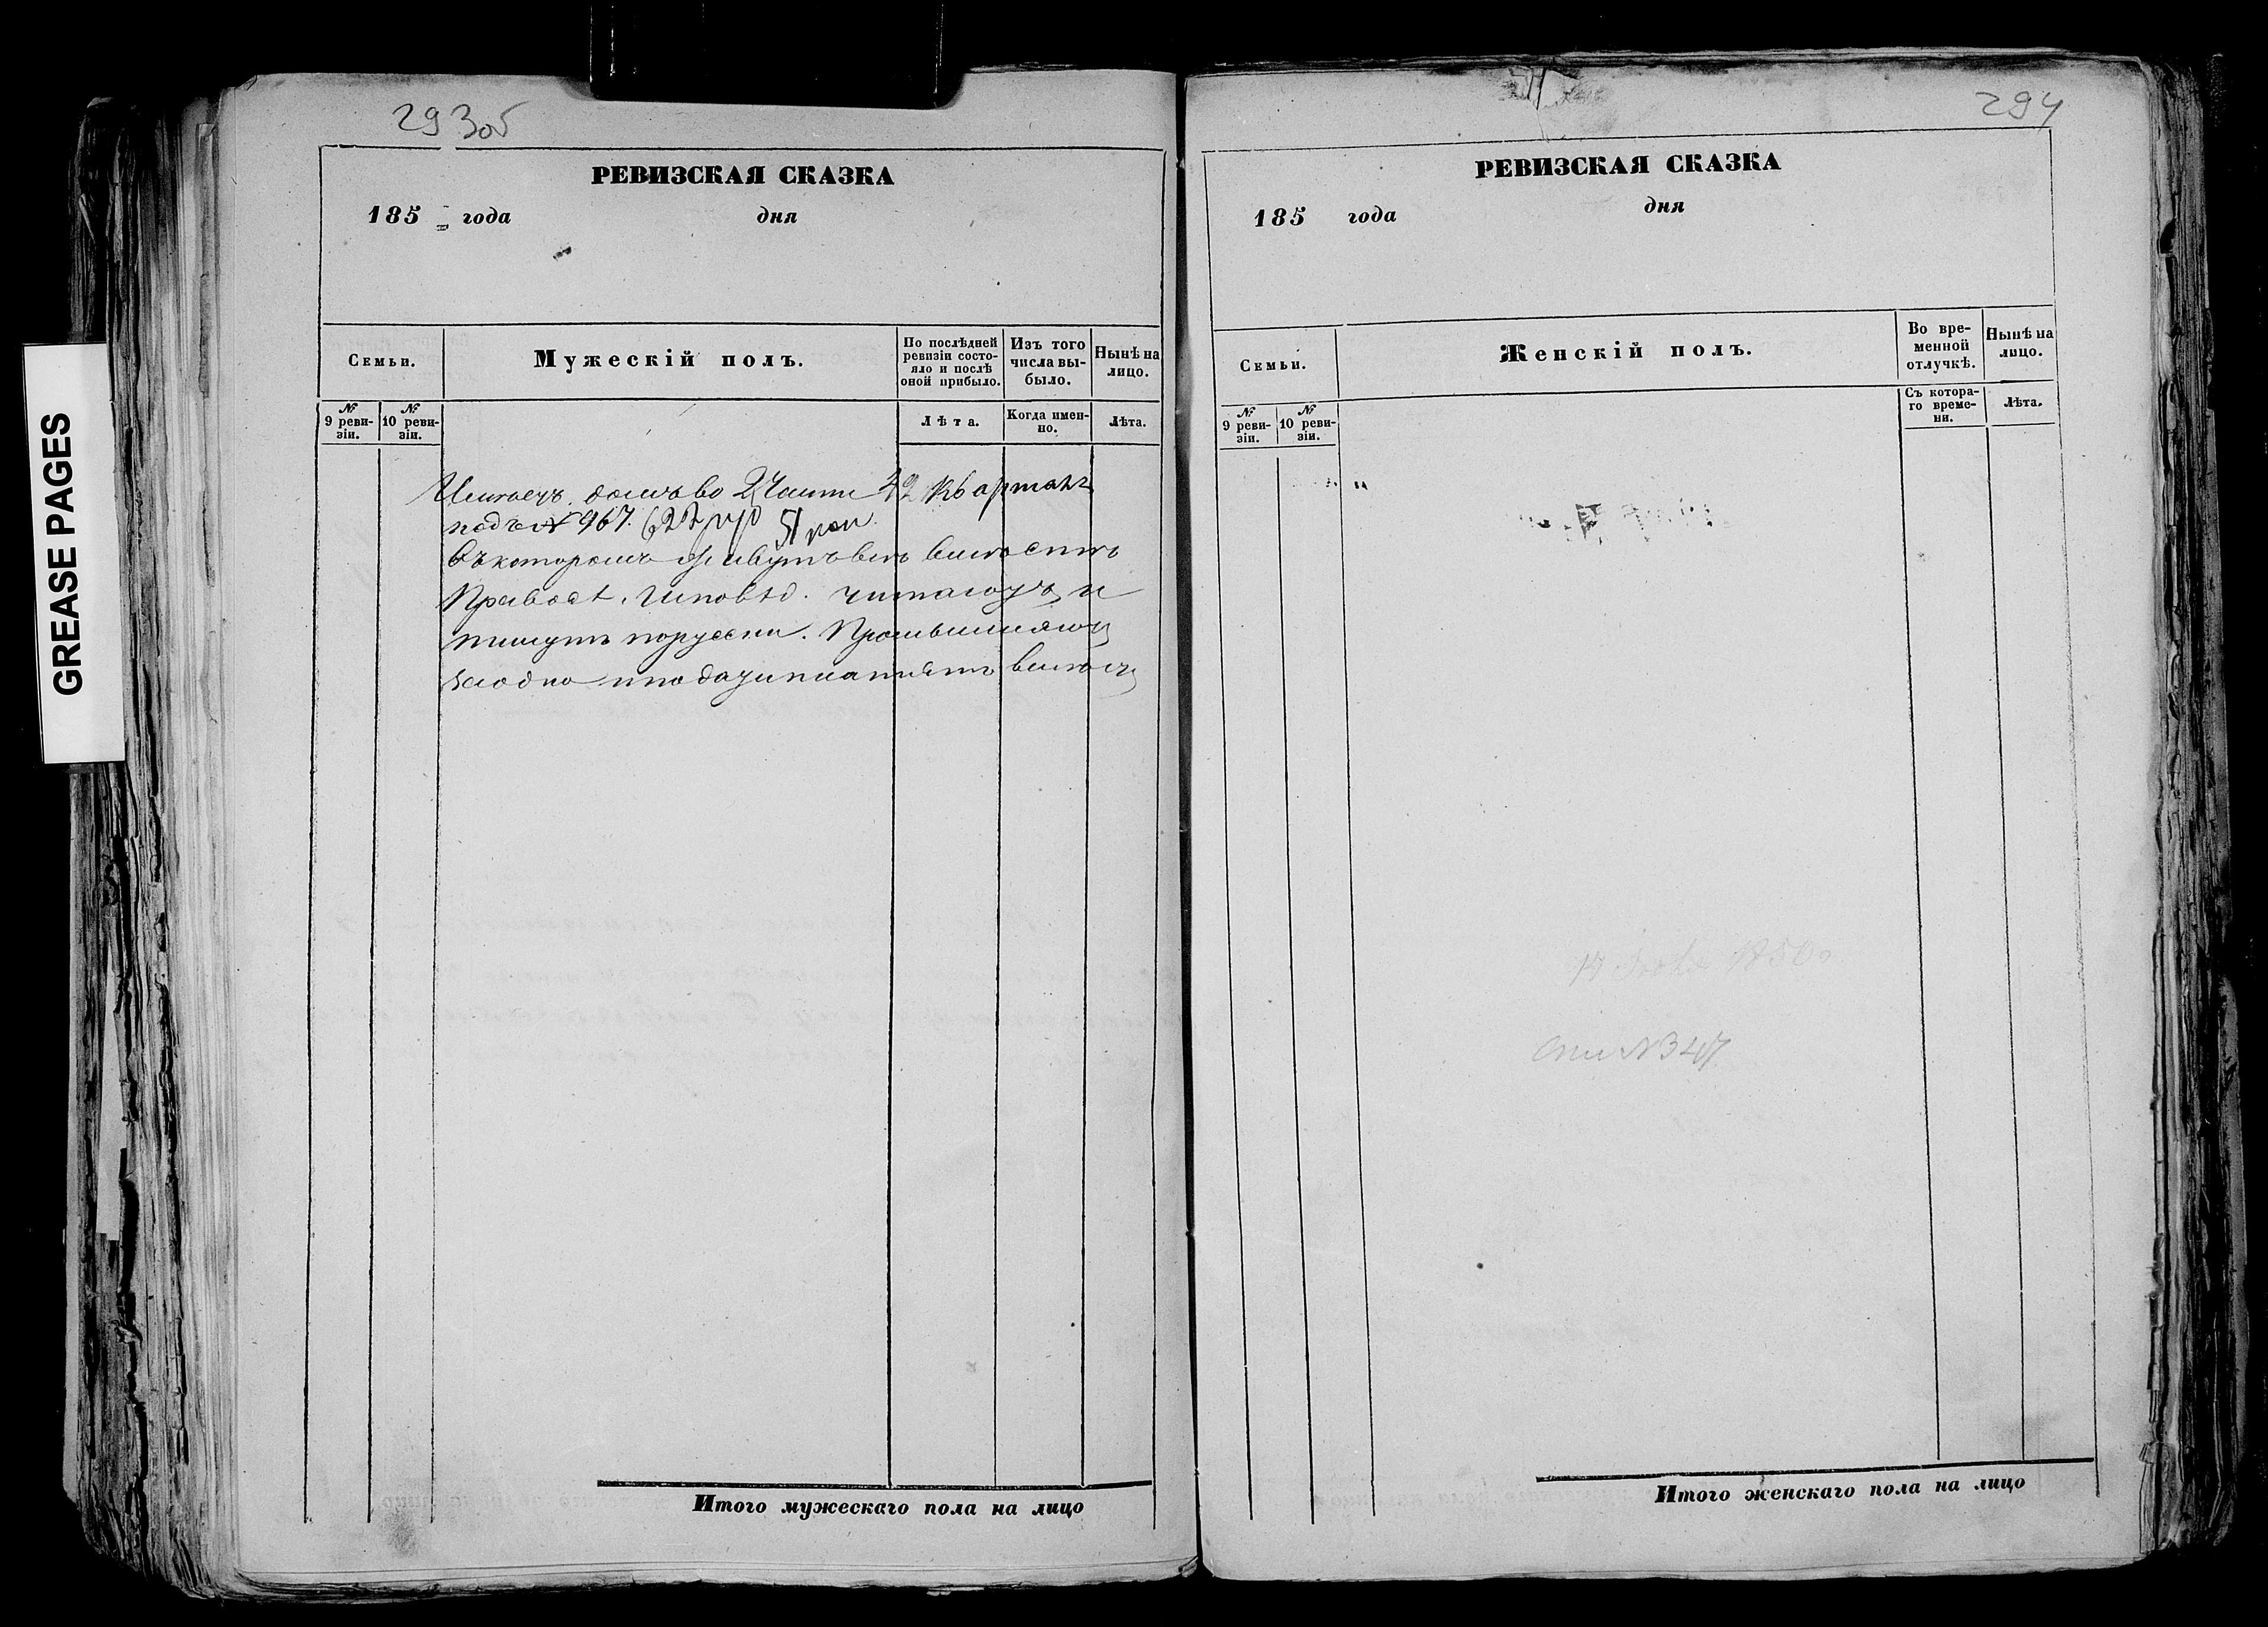 293 об
РЕВИЗСКАЯ СКАЗКА
185 года дня
Семьи.
Мужескій полъ.
По послѣдней ревизіи состояло и послѣ оной прибыло.
Изъ того числа выбыло.
Нынѣ на лицо.
№ 9 ревизіи.
№ 10 ревизіи.
Лѣта.
Когда именно.
Лѣта.
домъ во 2 Части 42 Квартал
подъ № 967. 622 р 51 коп
Въ которомъ живутъ всѣ вмѣстѣ
Правосл. Исповѣд. читаютъ и
пишутъ порусски. Промышляютъ
заодно и подати платятъ вмѣстѣ
Итого мужескаго пола на лицо
294
РЕВИЗСКАЯ СКАЗКА
185 года дня
Семьи.
Женскій полъ.
Во временной отлучкѣ.
Нынѣ на лицо.
№ 9 ревизіи.
№ 10 ревизіи.
Съ котораго времени.
Лѣта.
№ 347
Итого женскаго пола на лицо
GREASE PAGES